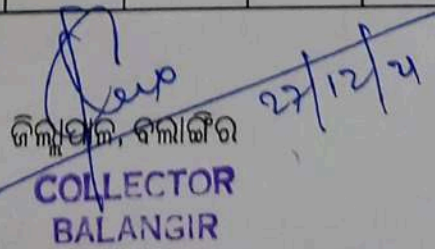 27/12/21
ଜିଲ୍ଲାପାଳ, ବଲାଙ୍ଗିର
COLLECTOR
BALANGIR